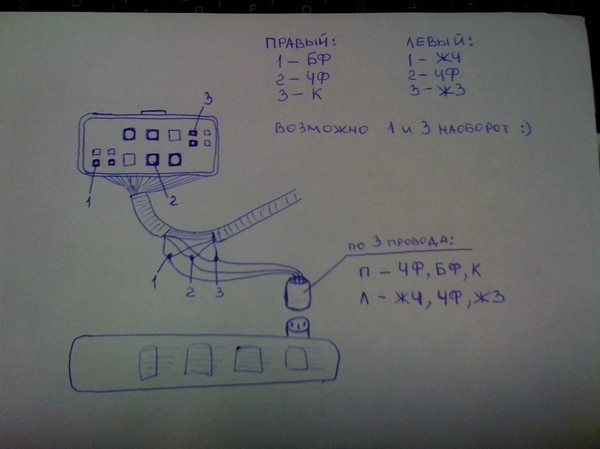 ПРАВЫЙ:
1 – БФ
2 – ЧФ
3 – К
ЛЕВЫЙ:
1 – ЖЧ
2 – ЧФ
3 – ЖЗ
ВОЗМОЖНО 1 и 3 НАОБОРОТ :)
3
1
2
1
2
3
ПО 3 ПРОВОДА:
П – ЧФ, БФ, К
Л – ЖЧ, ЧФ, ЖЗ